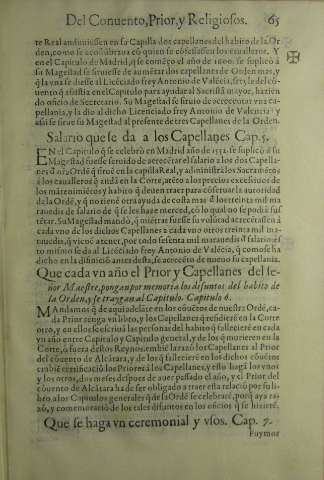 Del Conuento, Prior, y Religiosos. 65
te Real anduuiessen en su Capilla dos capellanes del habito de la Or
den, como se acostũbraua cõ quien se cõfessassen los caualleros. Y
en el Capitulo de Madrid, q̃ se comẽço el año de 1600. se suplicò à
su Magestad se siruiesse de aumẽtar dos capellanes de Ordẽ mas, y
q̃ la vna se diesse al Licẽciado frey Antonio de Valẽcia, del cõ
uento q̃ assistia en el Capitulo para ayudar al Sacristã mayor, hazien
do oficio de Secretario. Su Magestad se siruio de acrecẽtar vna ca
pellania, y la dio al dicho Licenciado frey Antonio de Valencia: y
assi se sirue su Magestad al presente de tres Capellanes de la Orden.
Salario que se da a los Capellanes Cap. 5.
EN el Capitulo q̃ se celebrò en Madrid año de 1552. se suplicò à su
Magestad fuesse seruido de acrecẽtar el salario a los dos Capella
nes q̃ siruẽ en la capilla Real, y administrã los Sacramẽtos
à los caualleros q̃ andã en la Corte, atẽto a los precios excessiuos de
los mãtenimiẽtos y habito q̃ deuen traer para cõseruar la autoridad
de la Ordẽ, y q̃ no tienẽ otra ayuda de costa mas q̃ los treinta mil ma
rauedis de salario de q̃ se les haze merced, cõ lo qual no se podiã sus
tẽtar. Su Magestad mandò, q̃ miẽtras fuesse su volũtad acrecẽtassen à
cada vno de los dichos Capellanes a cada vno otros treinta mil ma
rauedis, q̃ vienẽ a tener, por todo sesenta mil marauedis
to mismo se da al Licenciado frey Antonio de Valẽcia, q̃ como se ha
dicho en la difinicion antes desta, se acrecẽtò de nueuo su capellania.
Que cada vn año el Prior y Capellanes del se
ñor Maestre, pongan por memoria los difuntos del habito de
la Orden, y se traygan al Capitulo. Capitulo 6.
MAndamos q̃ de aqui adelãte en los cõuẽtos de nuestra Ordẽ, ca
da Prior tenga vn libro, y los Capellanes q̃ residierẽ en la Corte
otro, y en ellos se escriuã las personas del habito q̃ fallecierẽ en cada
vn año entre Capitulo y Capitulo general, y de los q̃ murieren en la
Corte, ò fuera destos Reynos, embiẽ lazon los Capellanes al Prior
del cõuento de Alcãtara, y de los q̃ fallecierẽ en los dichos cõuẽtos
embiẽ certificaciõ los Priores à los Capellanes, y esto hagã los vnos
y los otros, dos meses despues de auer passado el año, y el Prior del
conuento de Alcantara ha de ser obligado a traer esta relaciõ por su li
bro a los Capitulos generales q̃ de la Ordẽ se celebrarẽ, porq̃ aya ra
zõ, y comemoraciõ de los tales difuntos en los oficios q̃ se hizierẽ.
Que se haga vn ceremonial y vsos. Cap. 7.
Fuymos